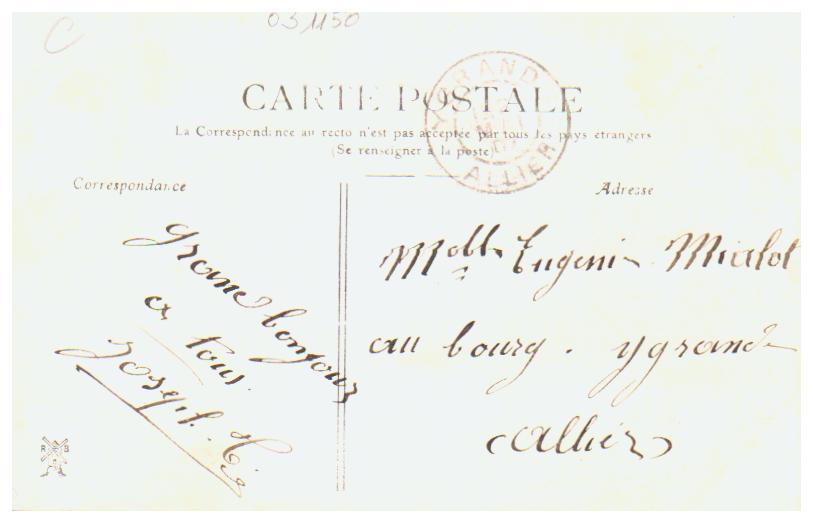 C
031150
CARTE POSTALE
La Correspondance au recto n'est pas acceptée par tous les pays étrangers
(Se renseigner à la poste)
YGRANDE
ALLIER
Correspondance
Adresse
grand bonjour
a tous.
Joseph
Melle Eugenie Mialot
au bourg. ygrande
Allier
R B